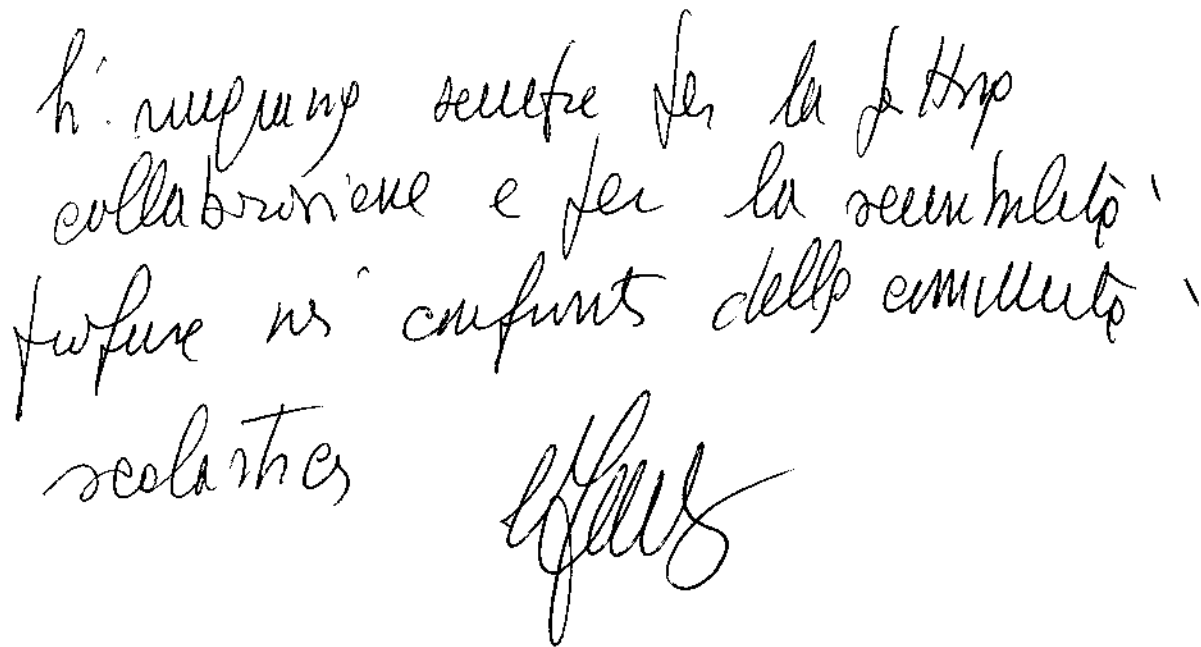 Vi ringrazio sempre per la fattiva
collaborazione e per la sensibilità
profusa nei confronti della comunità
scolastica